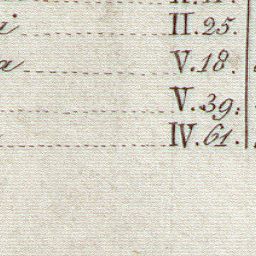 i II. 25.
a V. 18.
V. 39.
IV. 61.